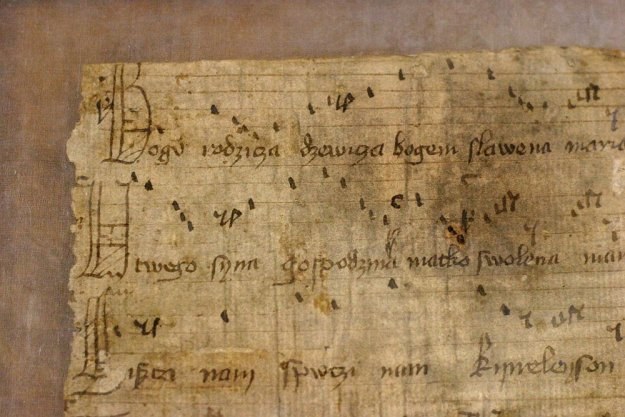 Bogv rodzicza dzewicza bogem slawena maria
Utwego syna gospodzina matko swolena mar
Siszczi nam spwczi nam Kyrieleyson